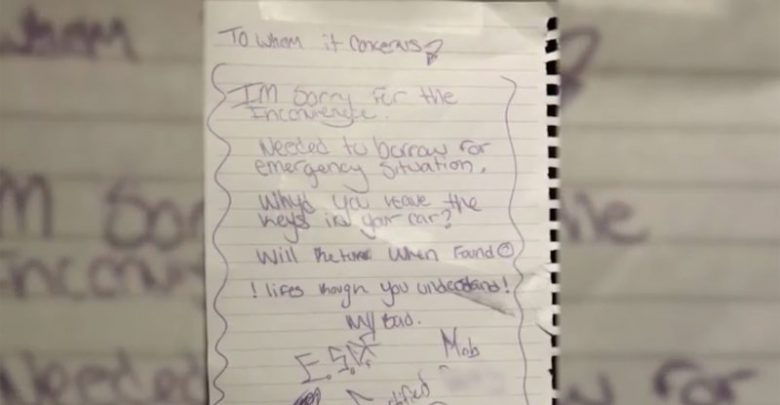 To whom it concerns
I'M Sorry for the
Inconvenience.
Needed to borrow for
emergency situation.
Why'd you leave the
keys in your car?
Will Return When Found
! lifes though you understand!
My bad.
Mob